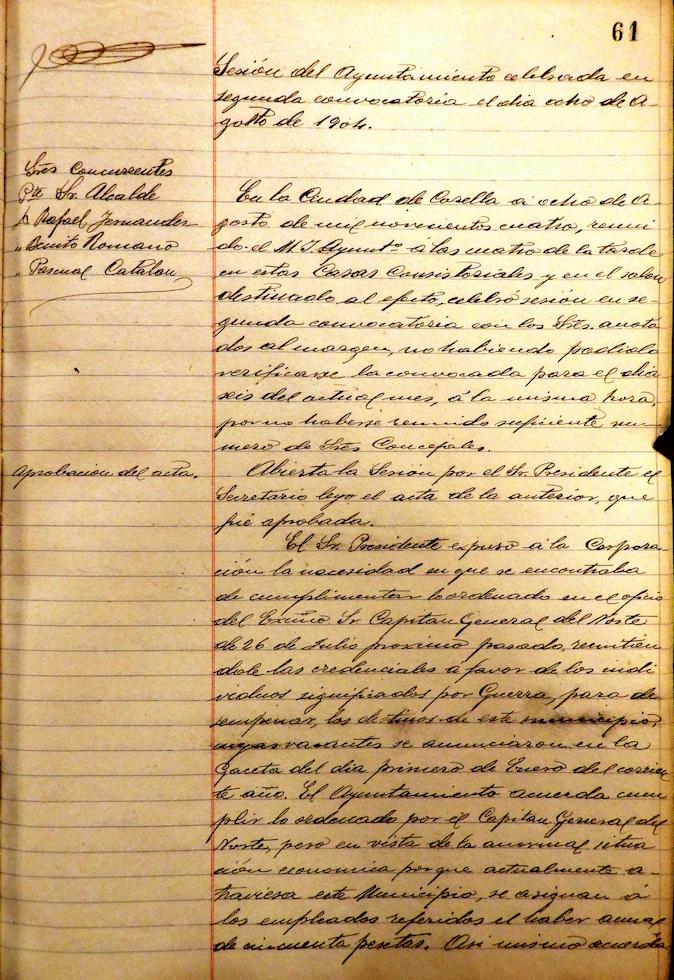 61
Sesión del Ayuntamiento celebrada en
segunda convocatoria el dia ocho de A-
gosto de 1904.
Sres Concurrentes
Pte Sr. Alcalde
D. Rafael Fernandez
„ Benito Romano
„ Pascual Catalan
En la Ciudad de Corella á ocho de A-
gosto de mil novecientos cuatro, reuni
do el M. I. Ayuntº á las cuatro de la tarde
en estas Casas Consistoriales y en el salon
destinado al efecto, celebró sesión en se
gunda convocatoria con los Sres. anota
dos al margen, no habiendo podido
verificarse la convocada para el dia
seis del actual mes, á la misma hora,
por no haberse reunido suficiente nu-
mero de Sres Concejales.
Aprobacion del acta.
Abierta la Sesión por el Sr. Presidente el
Secretario leyó el acta de la anterior, que
fué aprobada.
El Sr. Presidente expuso á la Corpora-
ción la necesidad en que se encontraba
de cumplimentar lo ordenado en el oficio
del Excmo Sr Capitan General del Norte
de 26 de Julio proximo pasado, remitien
dole las credenciales á favor de los indi
viduos significados por Guerra, para de
sempeñar, los destinos de este municipio,
cuyas vacantes se anunciaron en la
Gaceta del dia primero de Enero del corrien
te año. El Ayuntamiento acuerda cum
plir lo ordenado por el Capitan General del
Norte, pero en vista de la anormal situa
ción economica porque actualmente a-
traviesa este Municipio, se asignan á
los empleados referidos el haber anual
de cincuenta pesetas. Asi mismo acuerda